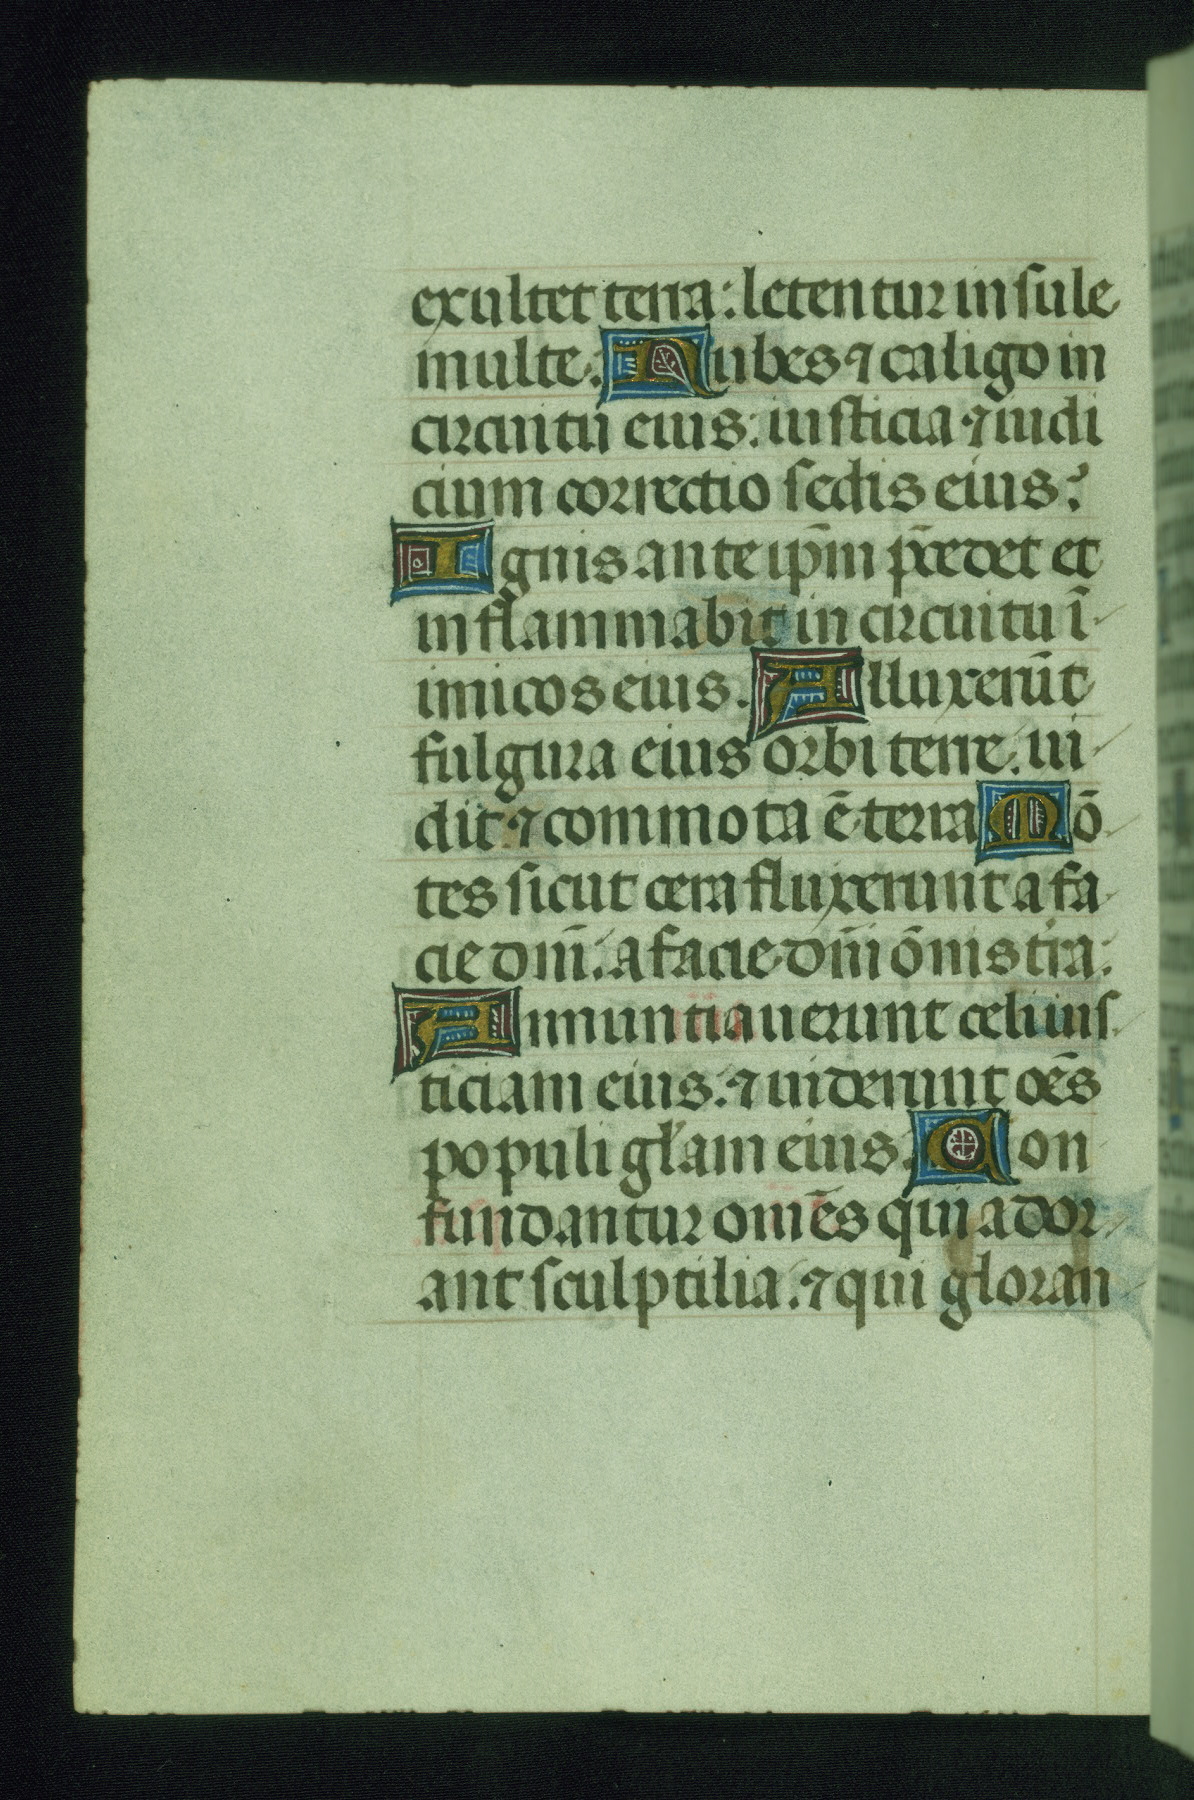 exultet terra: letentur insule
multe: Nubes ⁊ caligo in
circuitu eius: iusticia ⁊ iudi
cium correctio sedis eius:
Ignis ante ip̄m p̄cedet et
inflammabit in circuitu ī
imicos eius. Alluxerūt
fulgura eius orbi terre. ui
dit ⁊ commota ē terra Mō
tes sicut cera fluxerunt a fa
cie dm̄i. a facie dn̄i om̄is tr̄a:
Annuntiauerunt celi ius
ticiam eius. ⁊ uiderunt oēs
populi gl̄am eius: Con
fundantur omēs qui ador
ant sculptilia. ⁊ qui gloran